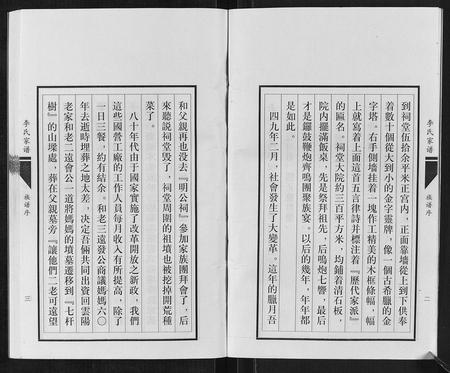 李氏家譜
族譜序
二
到祠堂伍拾余平米正宫内，正面靠墙從上到下供奉
着數十個從大到小的金字靈牌，像一個古希腊的金
字塔。右手側墙挂着一塊作工精美的木框條幅，幅
上就寫着上面這首五言律詩并標注着『歷代家派』
的匾名。祠堂大院約三百平方米，均鋪着清石板，
院内擺滿飯桌，先是祭拜祖先，后鳴炮七響，最后
才是鑼鼓鞭炮齊鳴團聚族宴。以后的幾年，年年都
是如此。
四九年二月，社會發生了大變革。這年的臘月吾
和父親再也没去『明公祠』參加家族團拜會了，后
來聽説祠堂毁了，祠堂周圍的祖墳也被挖掉開荒種
菜了。
八十年代由于國家實施了改革開放之新政，我們
這些國營工廠的工作人員每月收入有所提高，除了
一日三餐，約有結余。和老三遠發公商議媽媽六〇
年去逝時埋葬之地太差，决定吾倆共同出資回雲陽
老家和老二遠會公一道將媽媽的墳墓遷移到『七杆
樹』的山墚處，葬在父親墓旁『讓他們二老可遠望
李氏家譜
族譜序
三